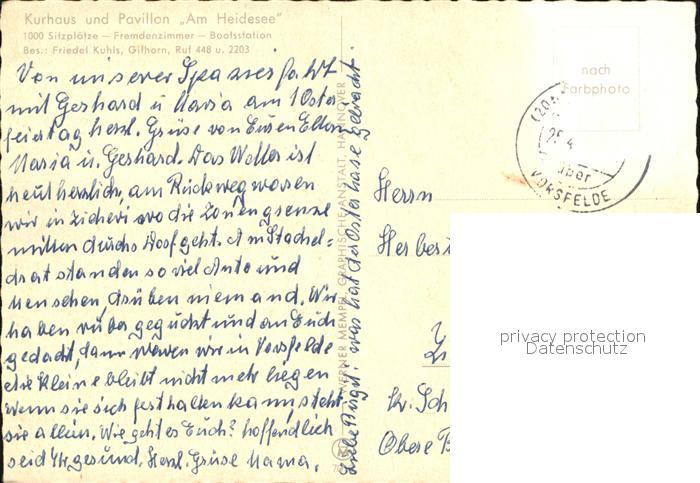 Kurhaus und Pavillon „Am Heidesee"
1000 Sitzplätze – Fremdenzimmer – Bootsstation
Bes.: Friedel Kuhls, Gifhorn, Ruf 448 u. 2203
Von unserer Spazierfahrt
mit Gerhard u Maria am 1 Oster
feiertag herzl. Grüse von Euren Eltern
Maria u. Gerhard. Das Wetter ist
heut herrlich, am Rückweg waren
wir in Zicheri wo die Zonengrenze
mitten durchs Dorf geht. Am Stachel-
drat standen so viel Auto und
Menschen drüben niemand. Wir
haben rüber geguckt und an Euch
gedacht, dann waren wir in Vorsfelde
die Kleine bleibt nicht mehr liegen
wenn sie sich festhalten kann, steht
sie allein. Wie geht es Euch? hoffendlich
seid Ihr gesund. Herzl. Grüse Mama.
Liebe Birgit! was hat der Osterhase gebracht
WERNER MEMPEL, GRAPHISCHE ANSTALT, HANNOVER
nach
Farbphoto
(20a)
25.4
über
VORSFELDE
Herrn
Herber
Kr. Sch
Obere B
privacy protection
Datenschutz